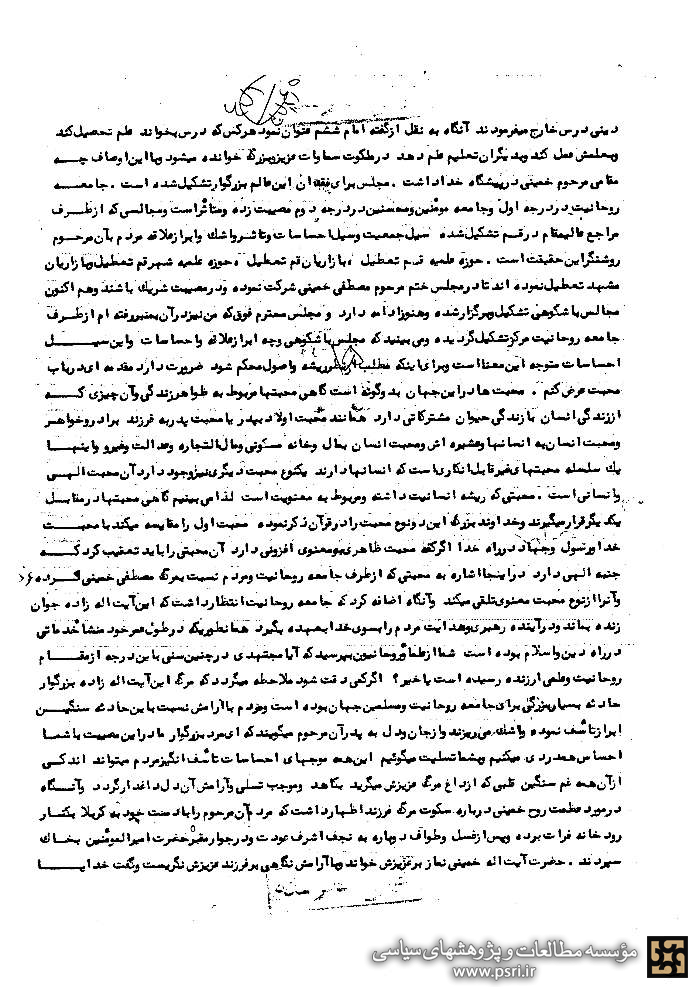 دینی درس خارج میفرمودند آنگاه به نقل از گفته امام ششم عنوان نمود هرکس که درس بخواند علم تحصیل کند
وبعلمش عمل کند وبدیگران تعلیم علم دهد درملکوت سماوات عزیز وبزرگ خوانده میشود وبااین اوصاف چه
مقامی مرحوم خمینی درپیشگاه خدا داشت . مجلس برای فقدان این عالم بزرگوار تشکیل شده است . جامعه
روحانیت دردرجه اول وجامعه مومنین ومحسنین دردرجه دوم مصیبت زده ومتاثراست ومجالسی که ازطرف
مراجع عالیمقام درقم تشکیل شده سیل جمعیت وسیل احساسات وتاثر واشک وابراز علاقه مردم بآن مرحوم
روشنگر این حقیقت است . حوزه علمیه قم تعطیل ، بازاریان قم تعطیل ، حوزه علمیه شهر قم تعطیل وبازاریان
مشهد تعطیل نموده اند تادرمجلس ختم مرحوم مصطفی خمینی شرکت نموده ودرمصیبت شریک باشند وهم اکنون
مجالس باشکوهی تشکیل وبرگزارشده وهنوزادامه دارد و مجلس محترم فوق که من نیزدرآن بمنبررفته ام ازطرف
جامعه روحانیت مرکز تشکیل گردیده ومی بینید که مجلس باشکوهی وچه ابراز علاقه واحساسات واین سیل
احساسات متوجه این معنااست وبرای اینکه مطلب ریشه واصول محکم شود ضرورت دارد مقدمه ای درباب
محبت عرض کنم . محبت ها دراین جهان بدوگونه است گاهی محبتها مربوط به ظواهر زندگی وآن چیزی که
اززندگی انسان بازندگی حیوان مشترکاتی دارد همانند محبت اولاد بپدر یا محبت پدر به فرزند برادر وخواهر
ومحبت انسان به انسانها وعشیره اش ومحبت انسان بمال وخانه مسکونی ومال التجاره وعدالت وغیرو واینها
یک سلسله محبتهای غیرقابل انکاری است که انسانها دارند یکنوع محبت دیگری نیزوجود دارد آن محبت الهی
وانسانی است . محبتی که ریشه انسانیت داشته ومربوط به معنویت است لذا می بینیم گاهی محبتها درمقابل
یکدیگر قرارمیگیرند وخداوند بزرگ این دونوع محبت را درقرآن ذکرنموده محبت اول را مقایسه میکند با محبت
خدا ورسول وجهاد درراه خدا اگرکفه محبت ظاهری برمعنوی افزونی دارد آن محبتی را باید تعقیب کرد که
جنبه الهی دارد دراینجا اشاره به محبتی که ازطرف جامعه روحانیت ومردم نسبت بمرگ مصطفی خمینی کرده
وآنرا ازنوع محبت معنوی تلقی میکند وآنگاه اضافه کرد که جامعه روحانیت انتظارداشت که این آیت اله زاده جوان
زنده بماند ودرآینده رهبری وهدایت مردم را بسوی خدا بعهده بگیرد همانطوریکه درطول عمرخود منشا خدماتی
درراه دین واسلام بوده است شما ازعلما وروحانیون بپرسید که آیا مجتهدی درچنین سنی باین درجه ازمقام
روحانیت وعلمی ارزنده رسیده است یاخیر؟ اگرکمی دقت شود ملاحظه میگردد که مرگ این آیت اله زاده بزرگوار
حادثه بسیاربزرگی برای جامعه روحانیت ومسلمین جهان بوده است ومردم با آرامش نسبت باین حادثه سنگین
ابراز تاسف نموده واشک میریزند وازجان ودل به پدرآن مرحوم میگویند که ای مرد بزرگوار ما دراین مصیبت باشما
احساس همدردی میکنیم وبشما تسلیت میگوئیم این همه موجهای احساسات تاسف انگیزمردم میتواند اندکی
ازآن همه غم سنگین قلبی که ازداغ مرگ عزیزش میگرید بکاهد وموجب تسلی وآرامش آن دل داغدار گردد وآنگاه
درمورد عظمت روح خمینی درباره سکوت مرگ فرزند اظهارداشت که مردم آن مرحوم را بادست خود به کربلا بکنار
رودخانه فرات برده وپس ازغسل وطواف دوباره به نجف اشرف عودت ودرجوار مقبرحضرت امیرالمومنین بخاک
سپردند . حضرت آیت اله خمینی نماز برعزیزش خواند وباآرامش نگاهی برفرزند عزیزش نگریست وگفت خدایا
موسسه مطالعات و پژوهشهای سیاسی
www.psri.ir